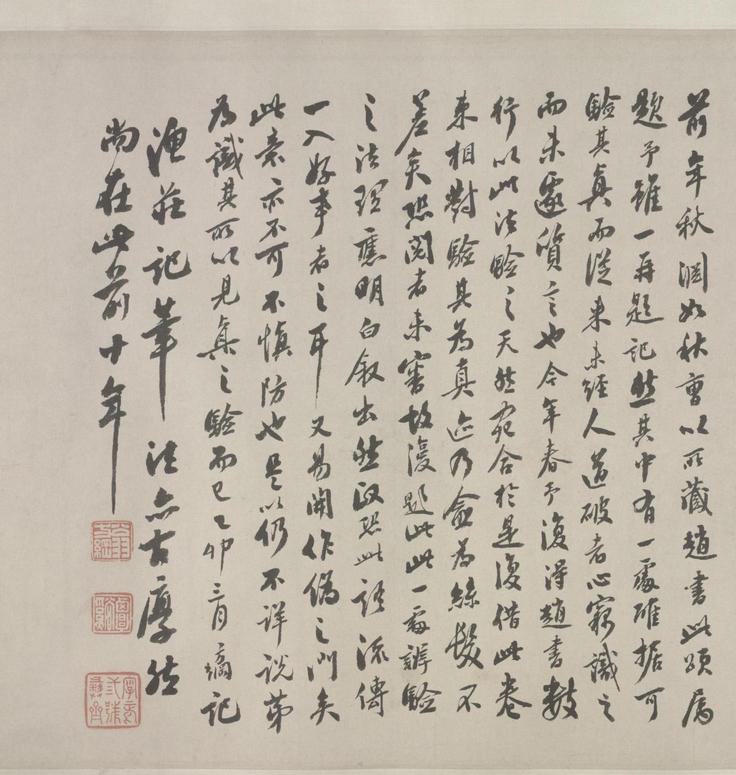 前年秋澗如秋曹以所藏趙書此頌屬
題予雖一再題記然其中有一處確据可
驗其真而從來未經人道破者心竊識之
而未遽質言也今年春予復得趙書數
行以此法驗之天然宛合於是復借此卷
來相對驗其為真迹乃僉為絲髮不
差矣恐閱者未審故復題此此一處諦驗
之法理應明白敘出然正恐此語流傳
一入好事者之耳又易開作偽之門矣
此意亦不可不慎防也是以仍不詳說第
為識其所以見真之驗而已乙卯三月方綱記
漁莊記筆法亦古厚然
尚在此前十年